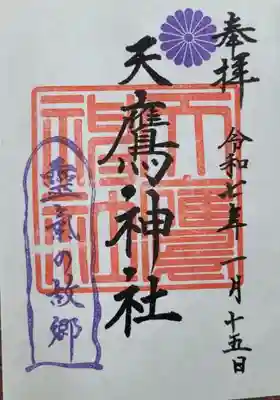 奉拝 令和七年一月十五日
天鷹神社
天鷹神社
靈気の故郷